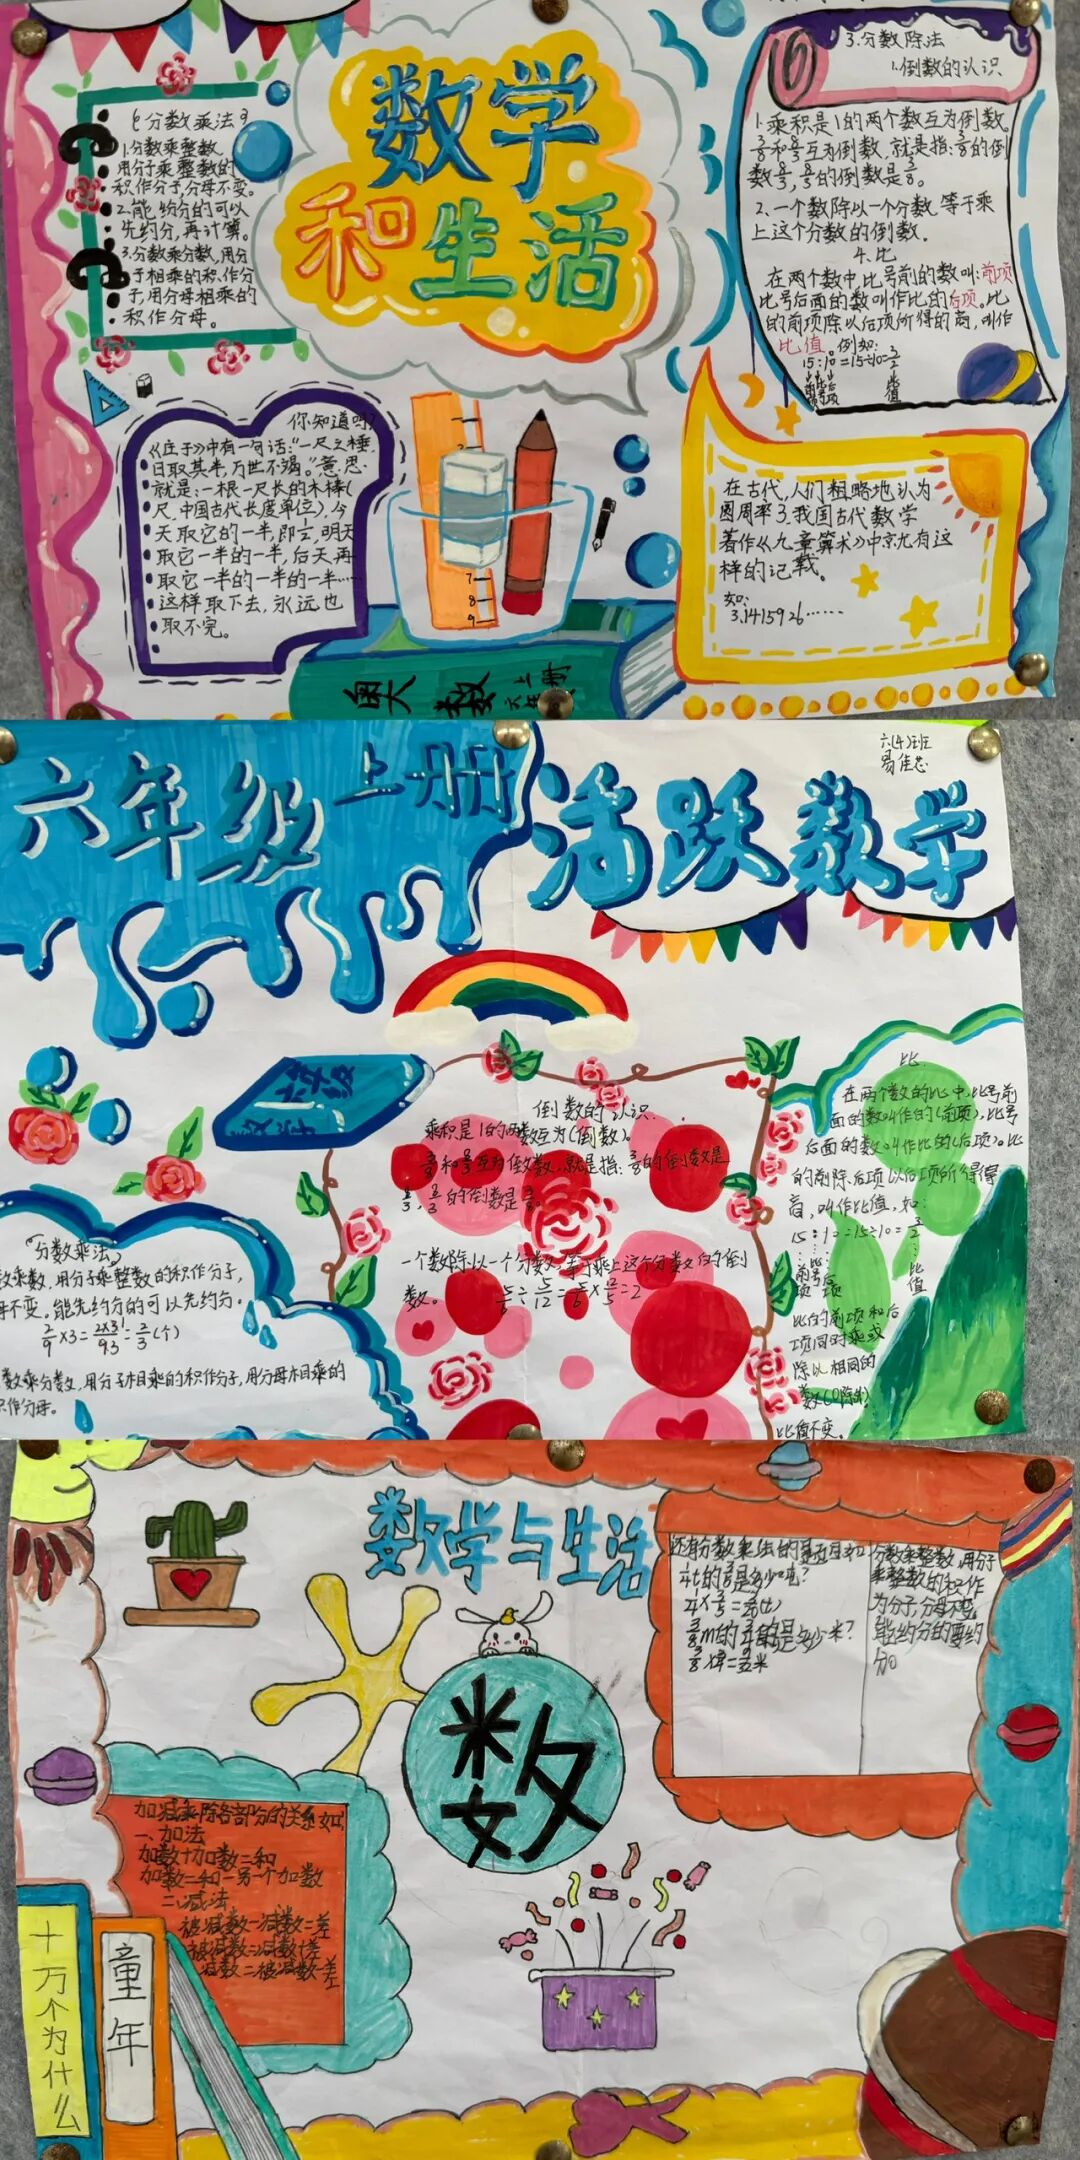 数学
和生活
分数乘法
1.分数乘整数,
用分子乘整数的
积作分子,分母不变。
2.能约分的可以
先约分,再计算。
3.分数乘分数,用分
子相乘的积,作分
子,用分母相乘的
积作分母。
3.分数除法
1.倒数的认识
1.乘积是1的两个数互为倒数。
3/8和8/3互为倒数,就是指:3/8的倒
数8/3,8/3的倒数是3/8。
2.一个数除以一个分数,等于乘
上这个分数的倒数.
4.比
在两个数中,比号前的数叫:前项
比号后面的数叫作比的后项。比
的前项除以后项所得的商,叫作
比值。例如:
15:10=15÷10=3/2
你知道吗?
《庄子》中有一句话:“一尺之棰,
日取其半,万世不竭。”意思
就是:一根一尺长的木棒(
尺,中国古代长度单位),今
天取它的一半,即1/2,明天
取它一半的一半,后天再
取它一半的一半的一半……
这样取下去,永远也
取不完。
在古代,人们粗略地认为
圆周率3.我国古代数学
著作《九章算术》中就有这
样的记载。
如:
3.1415926……
7
8
9
数
上册
六年级上册
活跃数学
六(4)班
易佳芯
倒数的认识.
乘积是1的两数互为(倒数)。
3/8和8/3互为倒数,就是指:3/8的倒数是
8/3,8/3的倒数是3/8。
一个数除以一个分数,等于乘上这个分数的倒
数。 5/6÷5/12=5/6×12/5=2
比
在两个数的比中,比号前
面的数叫作的(前项),比号
后面的数叫作比的(后项)。比
的前除后项以后项所得得
商,叫作比值,如:
15:10=15÷10=3/2
前 比号 后 比
项 项 值
比的前项和后
项同时乘或
除以相同的
数(0除外)
比值不变。
分数乘法
数乘数,用分子乘整数的积作分子,
母不变。能先约分的可以先约分.
2/9×3=2×3/9=2/3(个)
数乘分数,用分子相乘的积作分子,用分母相乘的
积作分母。
数学与生活
还有分数乘法的
t的是多少吨?
1/4×3/5=3/20(t)
3/8m的的是多少米?
分数乘整数,用分子
乘整数的积作
为分子,分母不变。
能约分的要约
分。
数
加减乘除各部分的关系如:
一、加法
加数+加数=和
加数=和-另一个加数
二、减法
被减数-减数=差
被减数=减数+差
减数=被减数-差
十万个为什么
童年